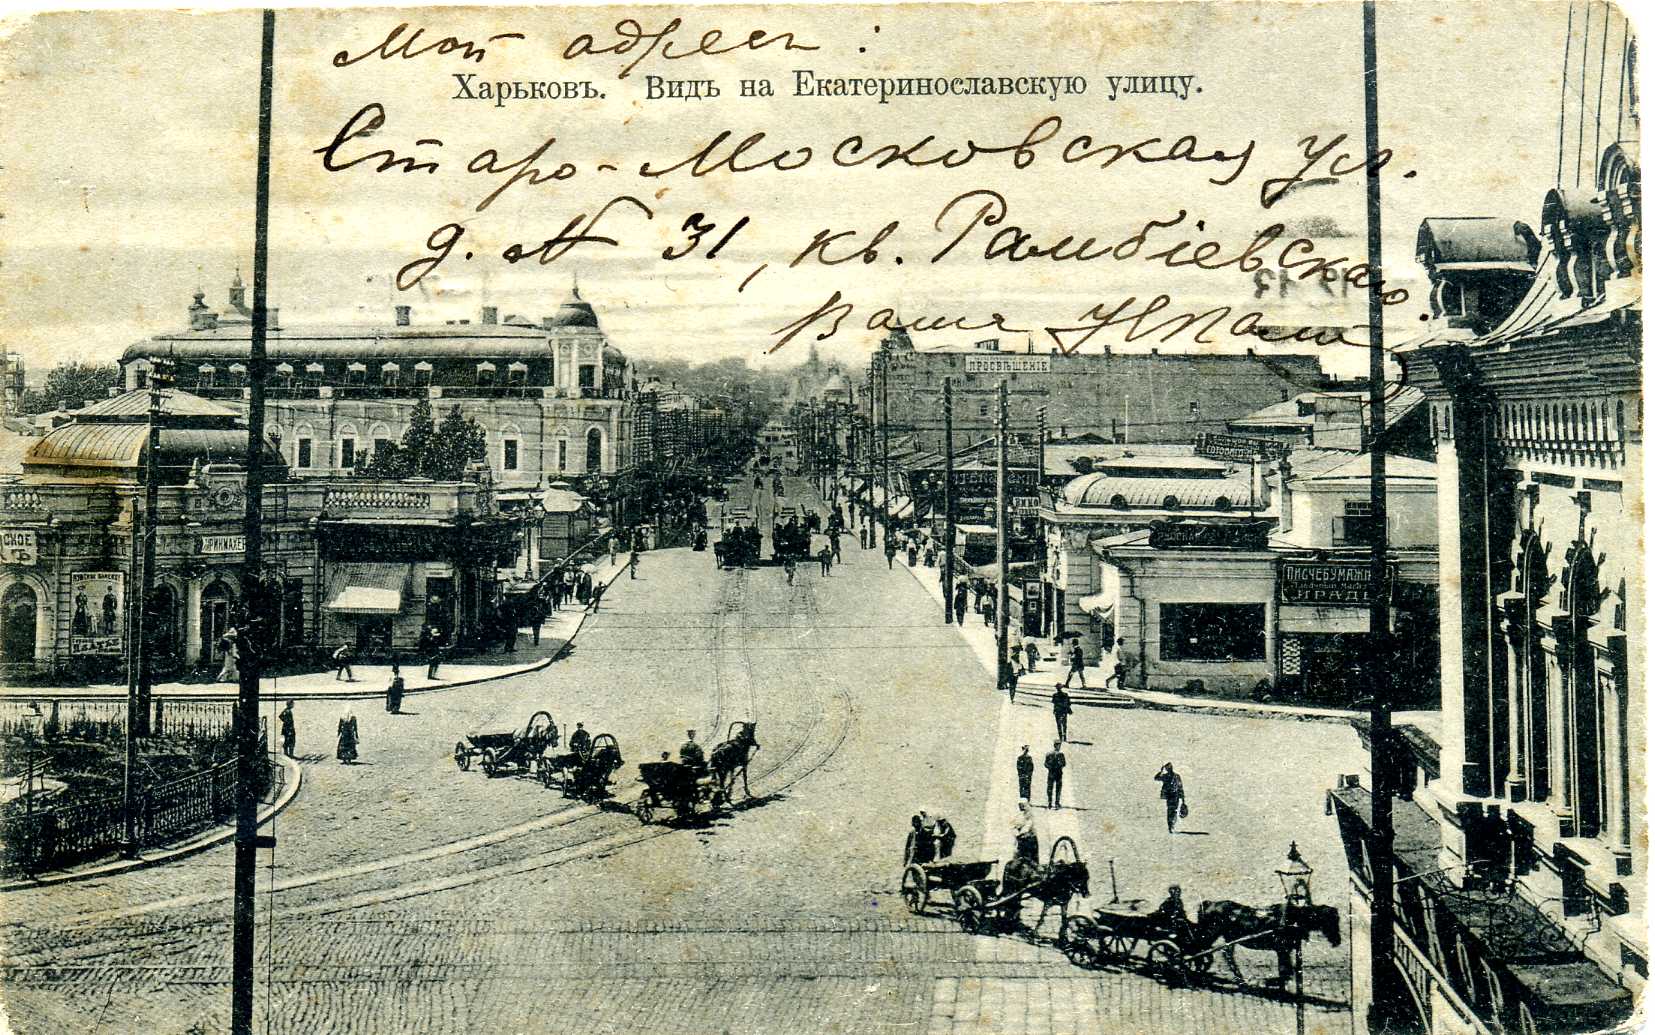 Мой адресъ:
Харьковъ. Видъ на Екатеринославскую улицу.
Старо-Московская ул.
д. № 31, кв. Рамбіевскаго.
Ваша
ПРОСВѢЩЕНІЕ
СКОЕ
РИКМАХЕР
ПИСЧЕБУМАЖН